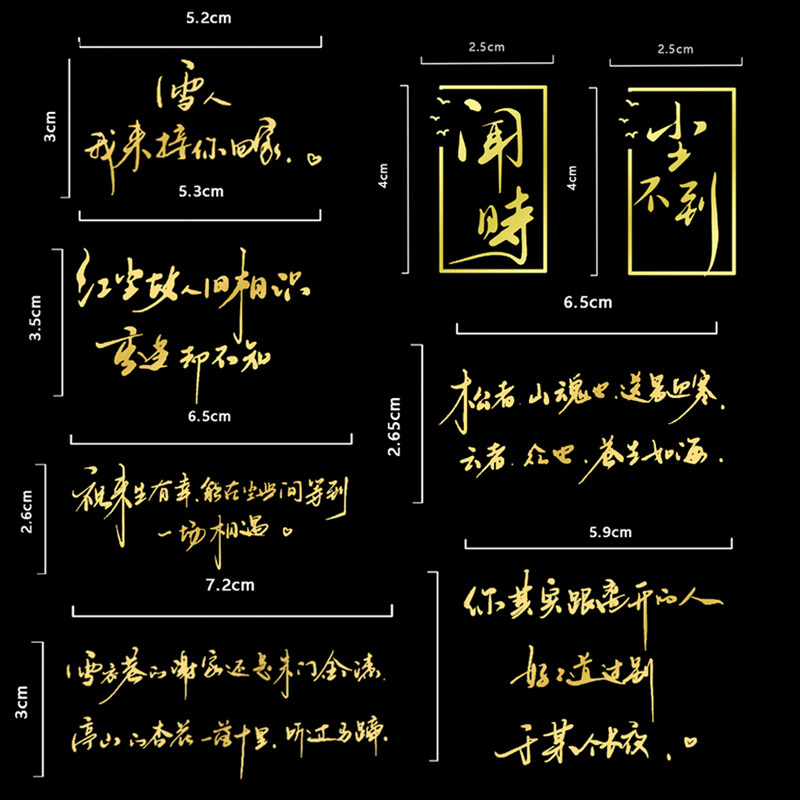 5.2cm
3cm
雪人
我来接你回家.♡
2.5cm
4cm
闻
時
2.5cm
4cm
尘
不到
5.3cm
3.5cm
红尘故人旧相识
重逢却不知
6.5cm
2.65cm
松者.山魂也.送暑迎寒.
云者.众也.苍生如海.
6.5cm
2.6cm
祝来生有幸.能在尘世间等到
一场相遇。♡
5.9cm
你其实跟离开的人
好好道过别
于某个长夜.♡
7.2cm
3cm
雪衣巷的谢家还是朱门金漆.
亭山的杏花一落十里.听过马蹄.